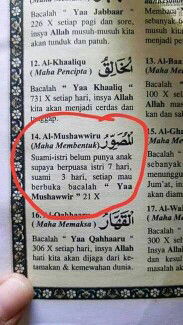 Bacalah " Yaa Jabbaar "
226 X setiap pagi dan sore,
insya Allah musuh-musuh kita
akan tunduk dan patuh.
12. Al-Khaaliqu
(Maha Pencipta)
الْخَالِقُ
Bacalah " Yaa Khaaliq
731 X setiap hari, insya Allah
akan menjadi cerdas dan
tanggap.
14. Al-Mushawwiru
(Maha Membentuk)
الْمُصَوِّرُ
Suami-istri belum punya anak
supaya berpuasa istri 7 hari,
suami 3 hari, setiap mau
berbuka bacalah " Yaa
Mushawwir " 21 X
16. Al-Qahhaaru
(Maha Memaksa)
الْقَهَّارُ
Bacalah " Yaa Qahhaaru "
306 X setiap hari, insya Allah
hati kita akan dijaga dari ke-
tamakan & kemewahan dunia.
13. Al-Baa
(Maha
Bacalah
100 X s
Allah
17. Al-W
(Maha
Bacalah
300 X